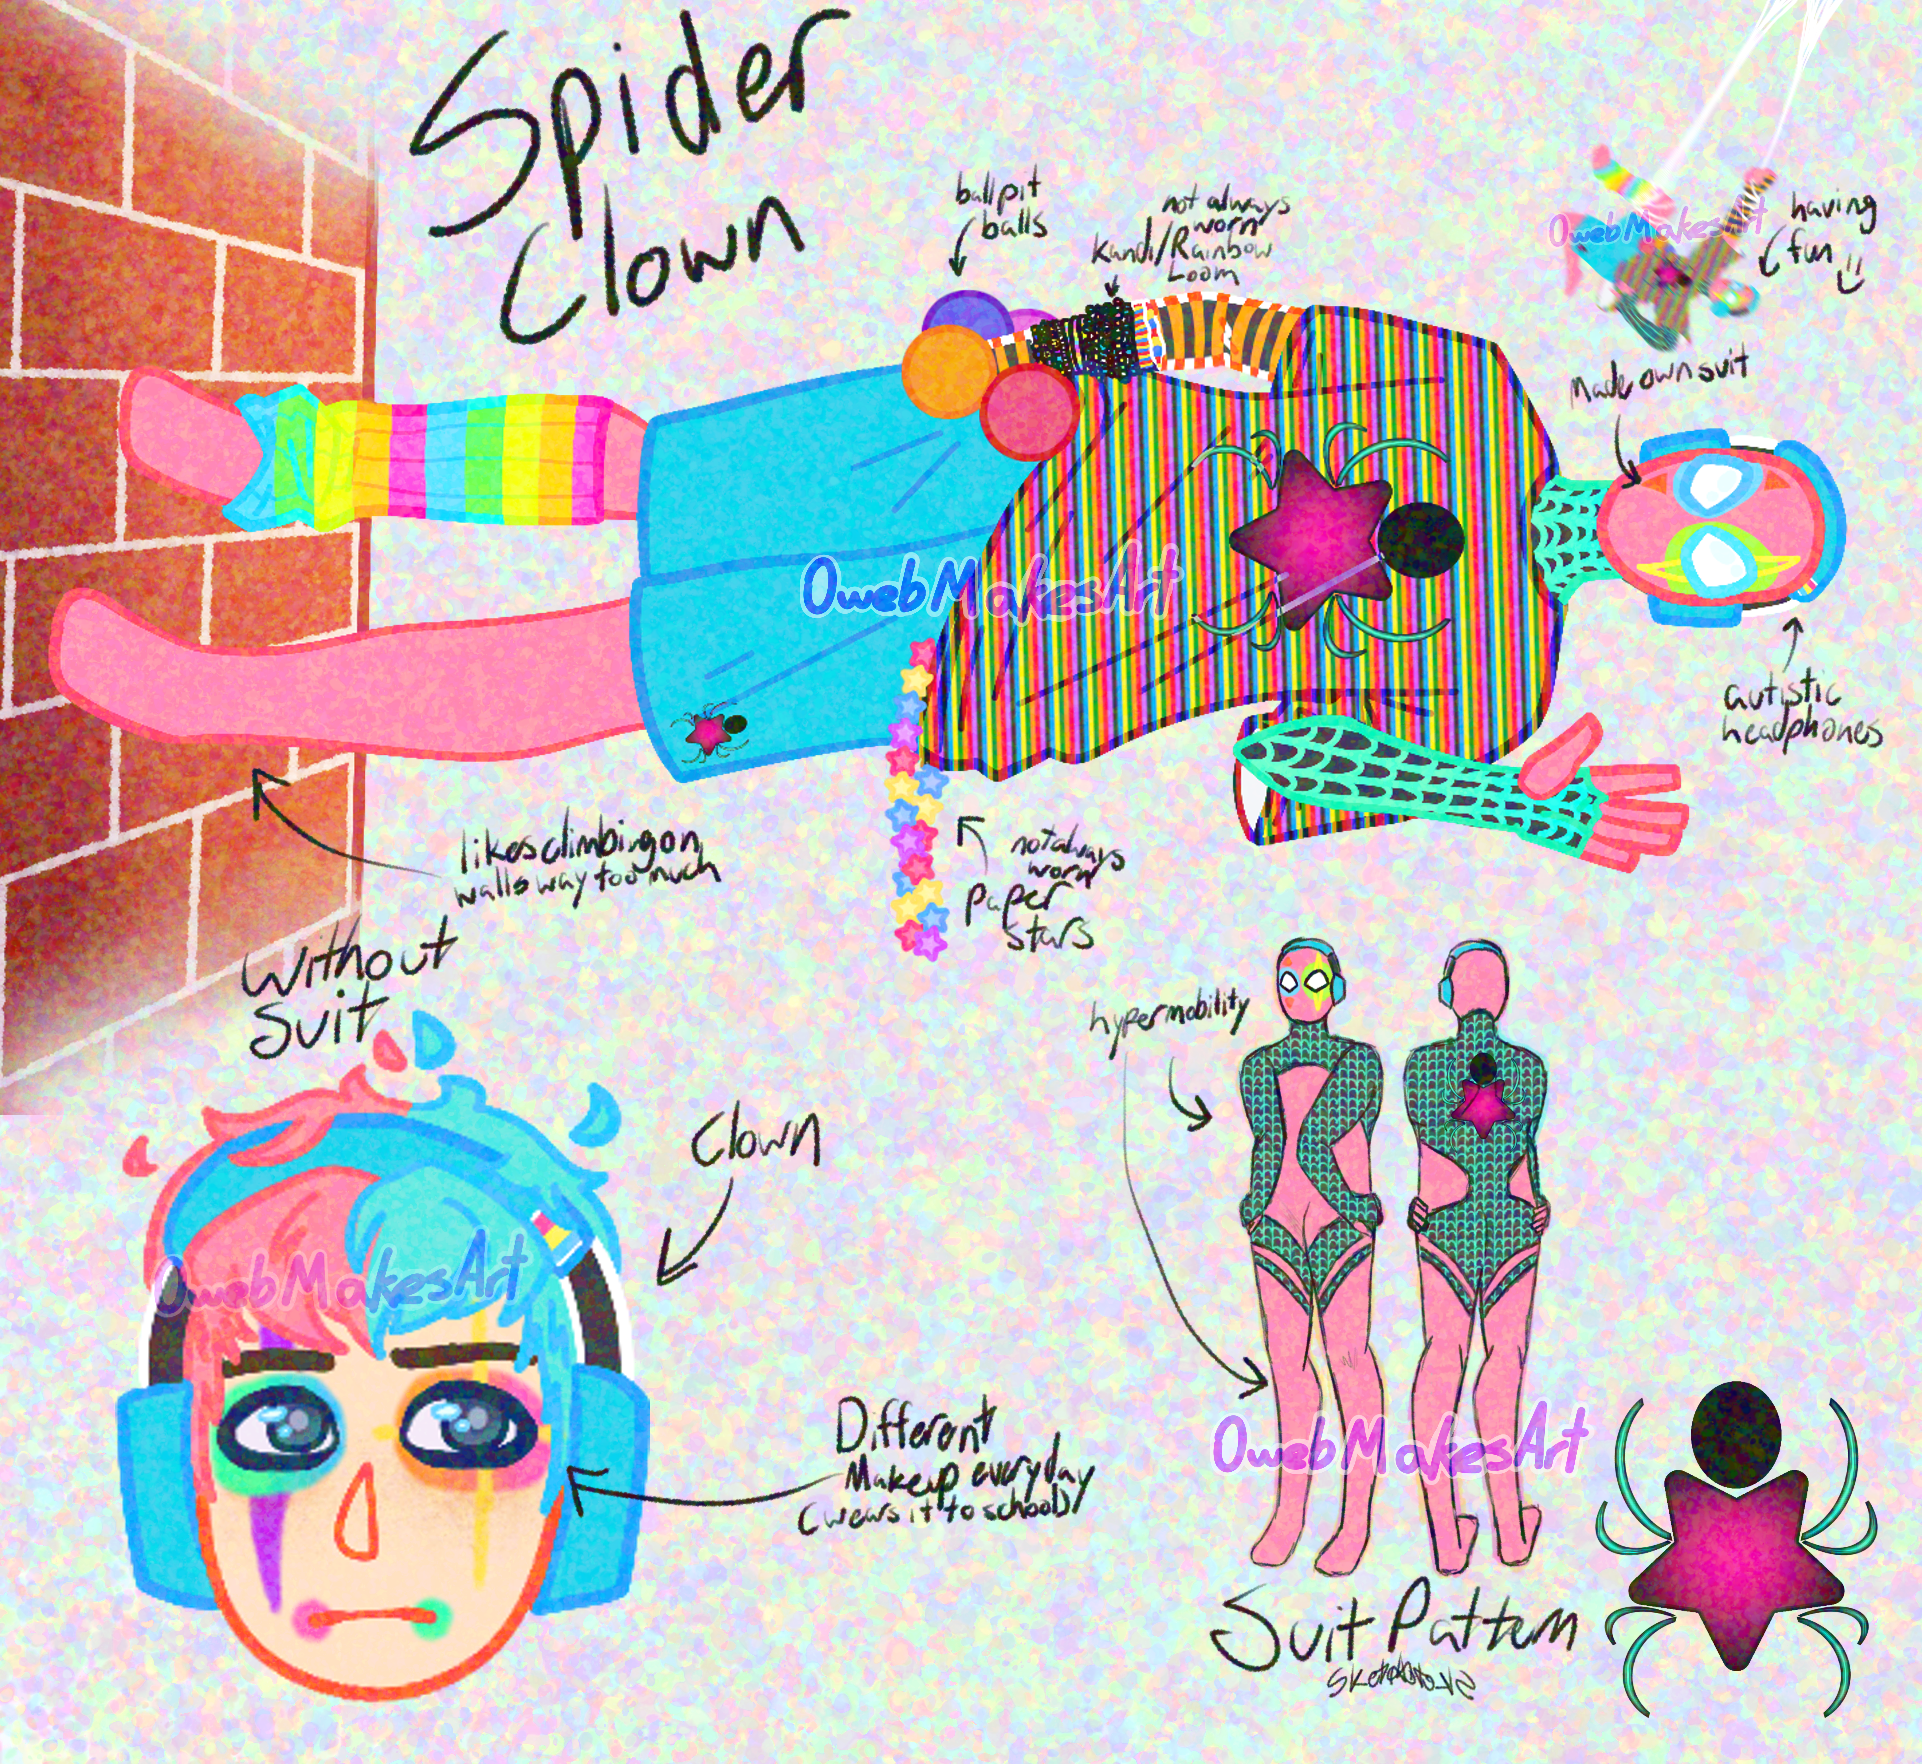 Spider
Clown
ballpit
balls
not always
worn
Kandi/Rainbow
Loom
having
fun
OwebMakesArt
Made own suit
OwebMakesArt
autistic
headphones
likes climbing on
walls way too much
not always
worn
paper
stars
Without
Suit
hypermobility
Clown
OwebMakesArt
Different
Makeup everyday
(wears it to school)
OwebMakesArt
Suit Pattern